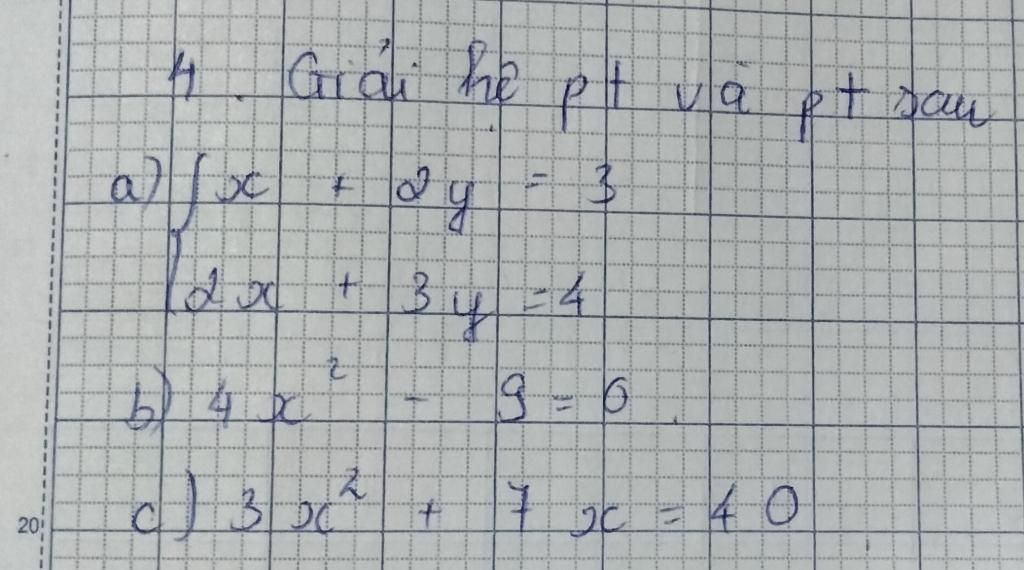 4. Giải hệ pt và pt sau
a) { x + 2y = 3
2x + 3y = 4
b) 4x² - 9 = 0.
c) 3x² + 7x = 40
20